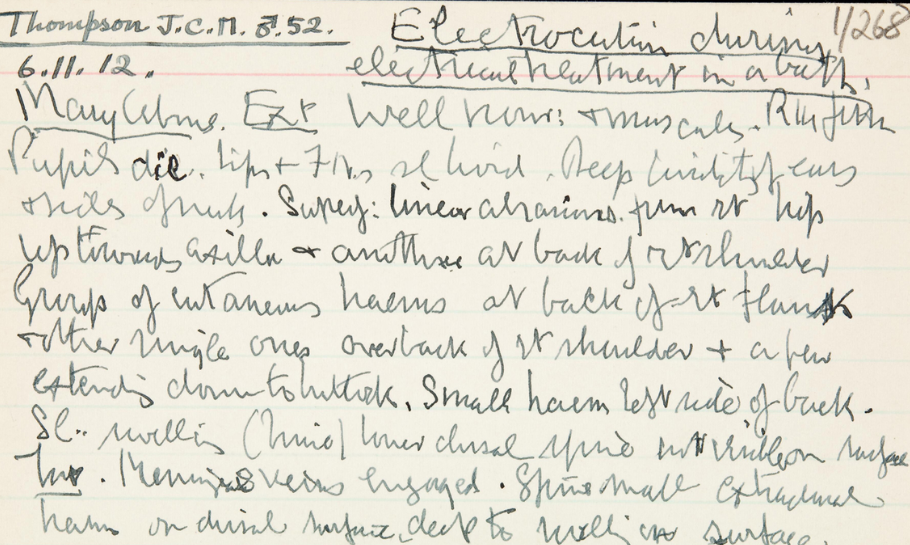 Thompson J.C.M. ♂. 52. Electrocution during 1/268
6.11.12. electrical treatment in a bath.
Marylebone. Ext Well nour: + muscular.
Pupils dil. Lips + F.N.s sl livid. Deep lividity of ears
+ sides of neck. Superf: linear abrasions from rt hip
up towards axilla + another at back of rt shoulder
Group of cutaneous haems at back of rt flank
+ other single ones over back of rt shoulder + a few
extending down to buttock. Small haem left side of back.
Sl. swelling lower dorsal spine not visible on surface
Int. Meningeal veins engorged. Spine small extradural
haem on dorsal surface, deep to swelling on surface.